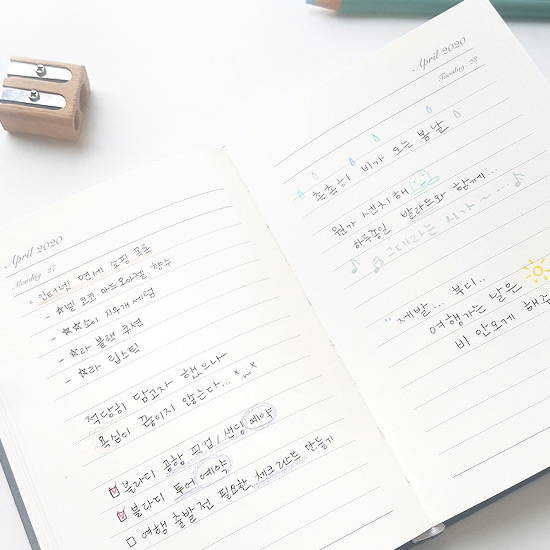 April 2020
Monday 27
* 인터넷 면세 쇼핑 목록
- ☆넬 코코 마드모아젤 향수
- ☆☆소이 지우개 세럼
- ☆라 블랙 쿠션
- ☆라 립스틱
적당히 담고자 했으나
욕심이 끊이지 않는다...
☑ 블라디 공항 픽업 / 샌딩 예약
☑ 블라디 투어 예약
☐ 여행 출발 전 필요한 체크리스트 만들기
April 2020
Tuesday 28
촌촌히 비가 오는 봄날
뭔가 센치해
하루종일 발라드와 함께...
♪ ♬ 그대라는 시가 ~ ... ♪
"제발... 부디..
여행가는 날은
비 안오게 해주